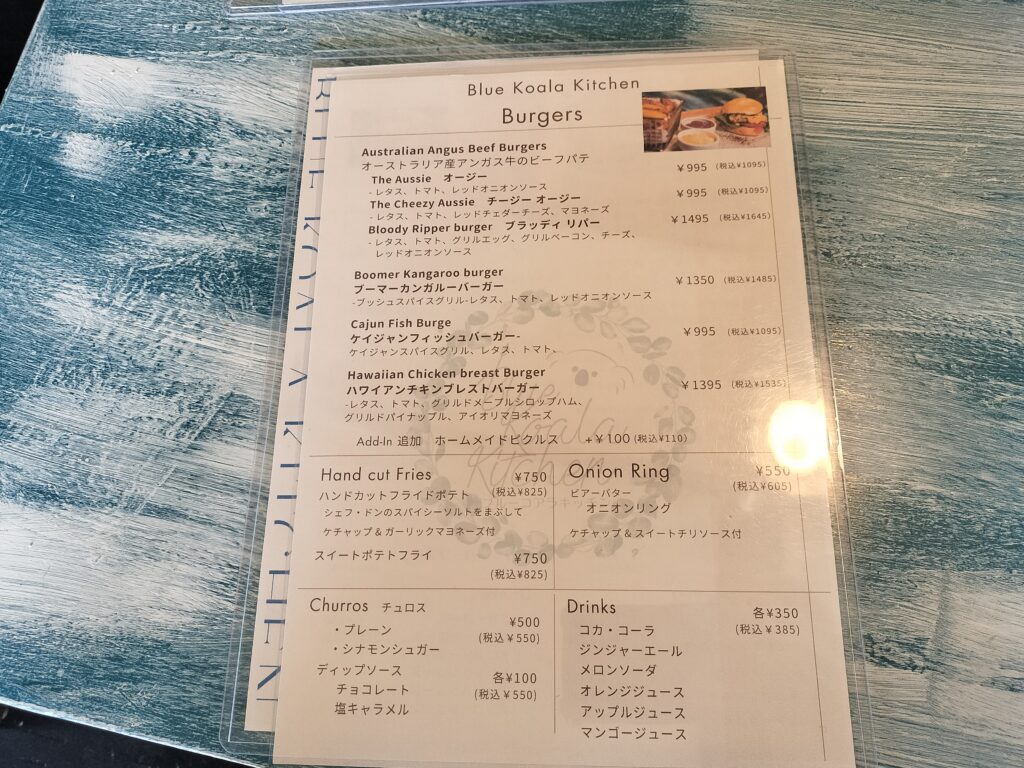 Blue Koala Kitchen
Burgers
Australian Angus Beef Burgers
オーストラリア産アンガス牛のビーフパテ
The Aussie オージー ￥995 (税込¥1095)
- レタス、トマト、レッドオニオンソース
The Cheezy Aussie チージー オージー ￥995 (税込¥1095)
- レタス、トマト、レッドチェダーチーズ、マヨネーズ
Bloody Ripper burger ブラッディ リパー ￥1495 (税込¥1645)
- レタス、トマト、グリルエッグ、グリルベーコン、チーズ、
レッドオニオンソース
Boomer Kangaroo burger ￥1350 (税込¥1485)
ブーマーカンガルーバーガー
-ブッシュスパイスグリル-レタス、トマト、レッドオニオンソース
Cajun Fish Burge ￥995 (税込¥1095)
ケイジャンフィッシュバーガー-
ケイジャンスパイスグリル、レタス、トマト、
Hawaiian Chicken breast Burger ￥1395 (税込¥1535)
ハワイアンチキンブレストバーガー
-レタス、トマト、グリルドメープルシロップハム、
グリルドパイナップル、アイオリマヨネーズ
Add-In 追加 ホームメイドピクルス +￥100 (税込¥110)
Koala
Kitchen
Hand cut Fries ¥750
ハンドカットフライドポテト (税込¥825)
シェフ・ドンのスパイシーソルトをまぶして
ケチャップ & ガーリックマヨネーズ付
スイートポテトフライ ¥750
(税込¥825)
Onion Ring ¥550
ビアーバター (税込¥605)
オニオンリング
ケチャップ & スイートチリソース付
Churros チュロス ¥500
・プレーン (税込￥550)
・シナモンシュガー
ディップソース 各¥100
チョコレート (税込￥550)
塩キャラメル
Drinks 各¥350
コカ・コーラ (税込￥385)
ジンジャーエール
メロンソーダ
オレンジジュース
アップルジュース
マンゴージュース